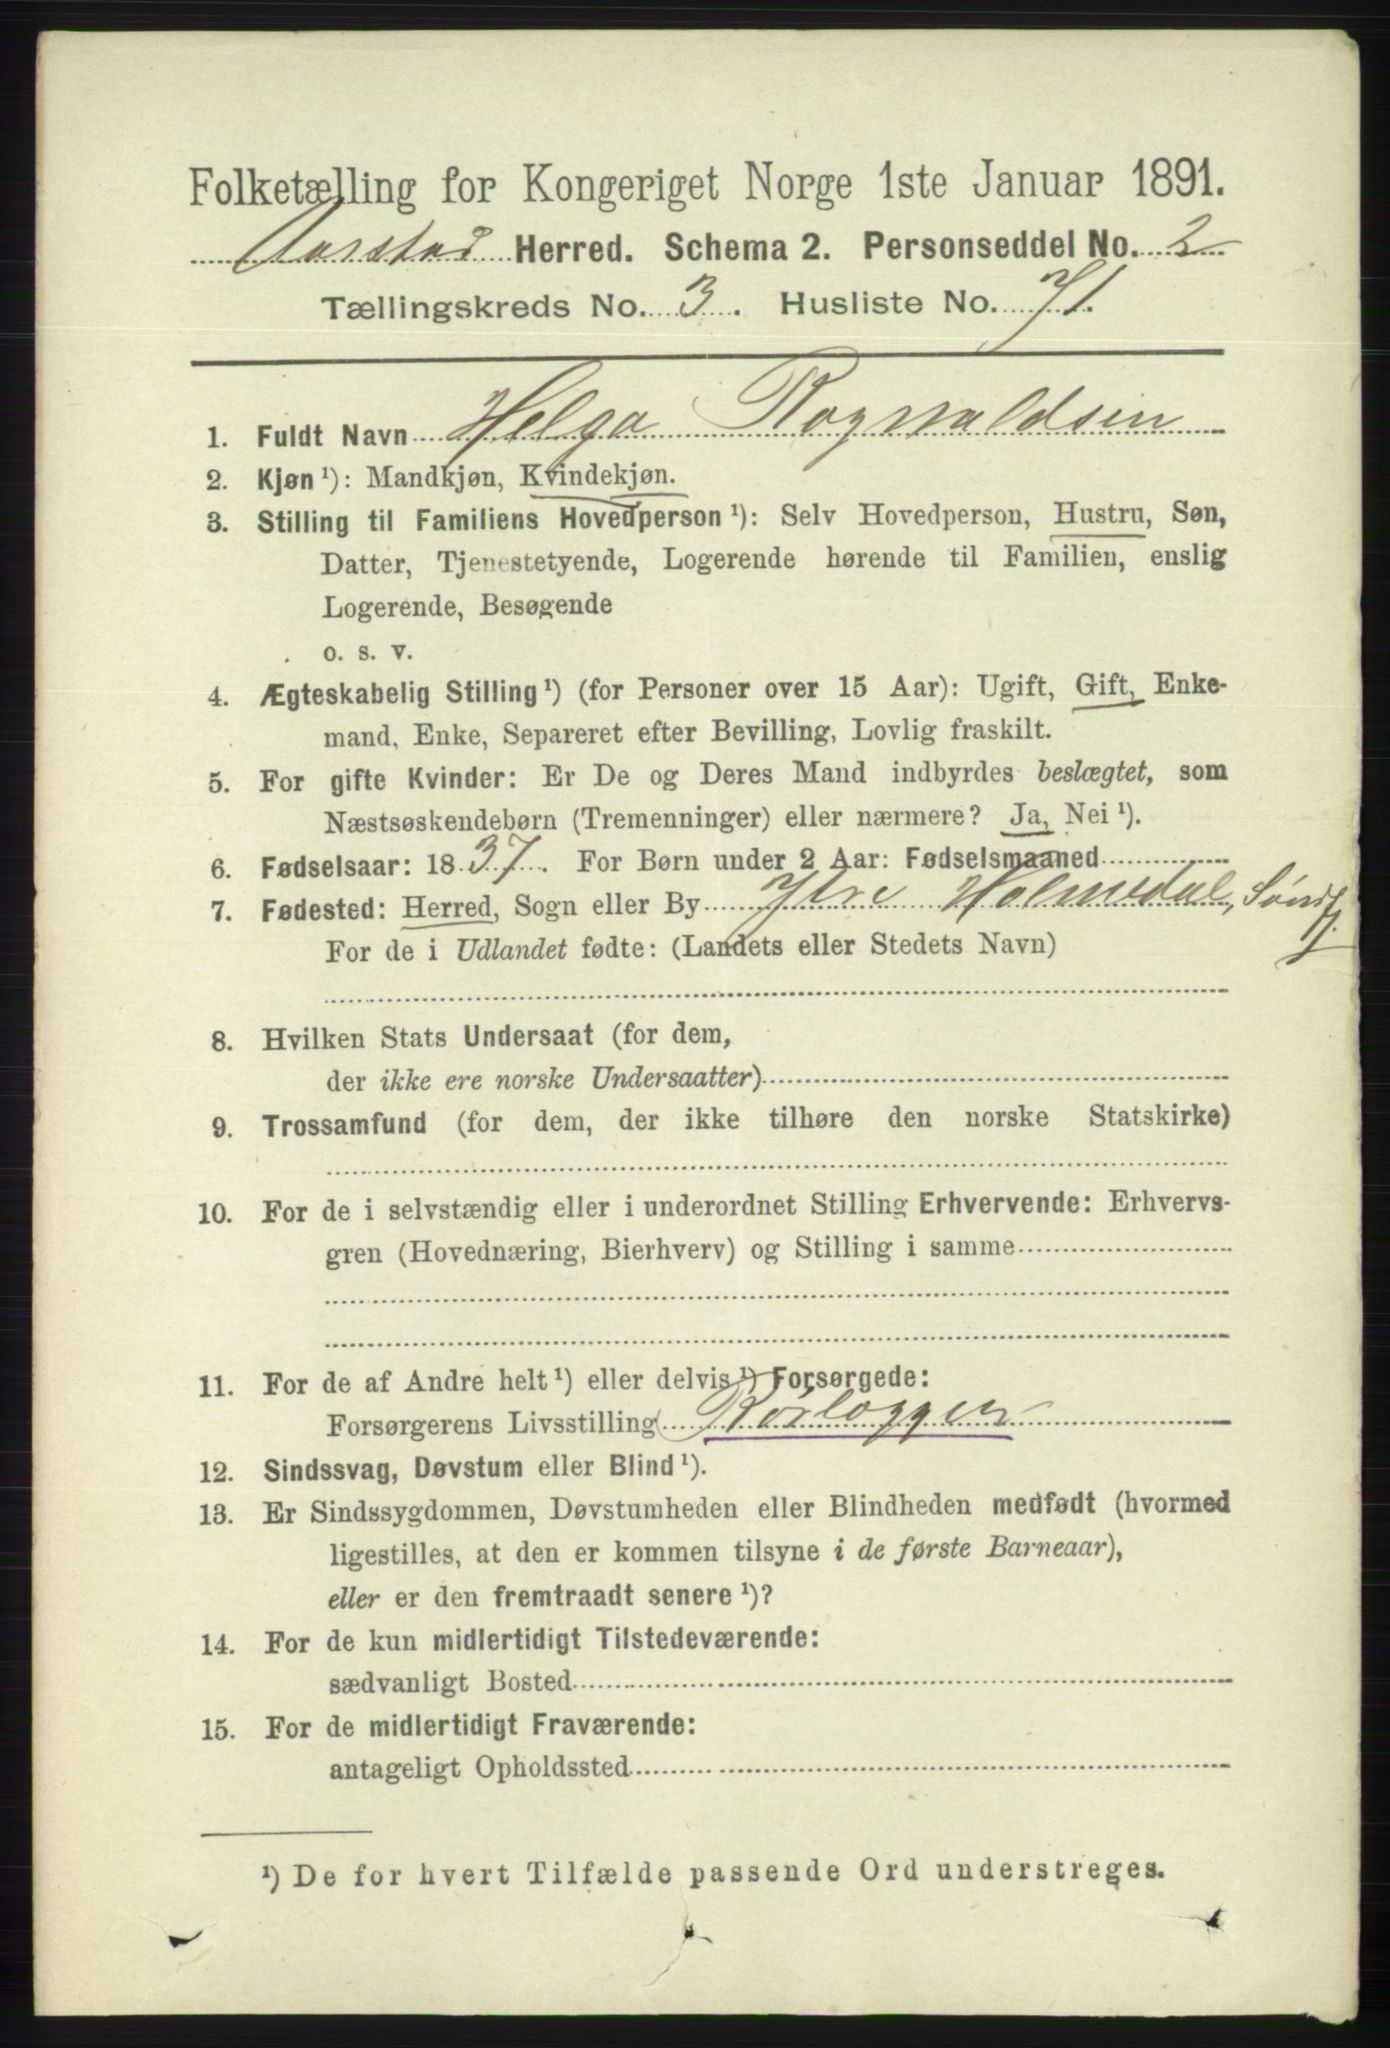 Folketælling for Kongeriget Norge 1ste Januar 1891.
Aarstad Herred. Schema 2. Personseddel No. 2
Tællingskreds No. 3. Husliste No. 71.
1. Fuldt Navn Helga Rognaldsen
2. Kjøn ¹): Mandkjøn, Kvindekjøn.
3. Stilling til Familiens Hovedperson ¹): Selv Hovedperson, Hustru, Søn,
Datter, Tjenestetyende, Logerende hørende til Familien, enslig
Logerende, Besøgende
o. s. v.
4. Ægteskabelig Stilling ¹) (for Personer over 15 Aar): Ugift, Gift, Enke-
mand, Enke, Separeret efter Bevilling, Lovlig fraskilt.
5. For gifte Kvinder: Er De og Deres Mand indbyrdes beslægtet, som
Næstsøskendebørn (Tremenninger) eller nærmere? Ja, Nei ¹).
6. Fødselsaar: 1837. For Børn under 2 Aar: Fødselsmaaned
7. Fødested: Herred, Sogn eller By Ytre Holmedal, Søndfj.
For de i Udlandet fødte: (Landets eller Stedets Navn)
8. Hvilken Stats Undersaat (for dem,
der ikke ere norske Undersaatter)
9. Trossamfund (for dem, der ikke tilhøre den norske Statskirke)
10. For de i selvstændig eller i underordnet Stilling Erhvervende: Erhvervs-
gren (Hovednæring, Bierhverv) og Stilling i samme
11. For de af Andre helt ¹) eller delvis ¹) Forsørgede:
Forsørgerens Livsstilling Rørlægger
12. Sindssvag, Døvstum eller Blind ¹).
13. Er Sindssygdommen, Døvstumheden eller Blindheden medfødt (hvormed
ligestilles, at den er kommen tilsyne i de første Barneaar),
eller er den fremtraadt senere ¹)?
14. For de kun midlertidigt Tilstedeværende:
sædvanligt Bosted
15. For de midlertidigt Fraværende:
antageligt Opholdssted
¹) De for hvert Tilfælde passende Ord understreges.